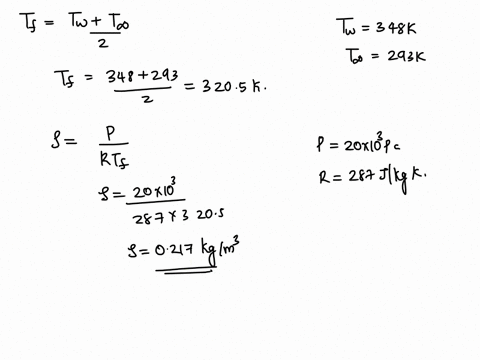 Tf = Tw + T∞ / 2
Tw = 348K
T∞ = 293K
Tf = 348 + 293 / 2 = 320.5 K.
ρ = P / RTf
P = 20×10³ Pa
R = 287 J/kg K.
ρ = 20×10³ / 287 × 320.5
ρ = 0.217 kg/m³